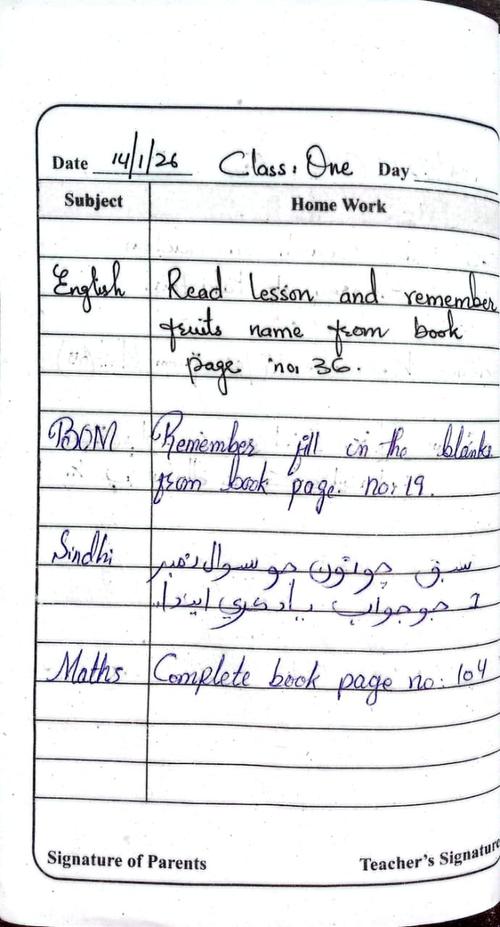 Date 14/1/26 Class: One Day
Subject Home Work
English Read lesson and remember
fruits name from book
page no: 36.
BOM Remember fill in the blanks
from book page no: 19.
Sindhi سبق چوائون جو سوال نمبر
1 جو جواب ياد ڪري ايندا.
Maths Complete book page no: 104
Signature of Parents Teacher's Signature